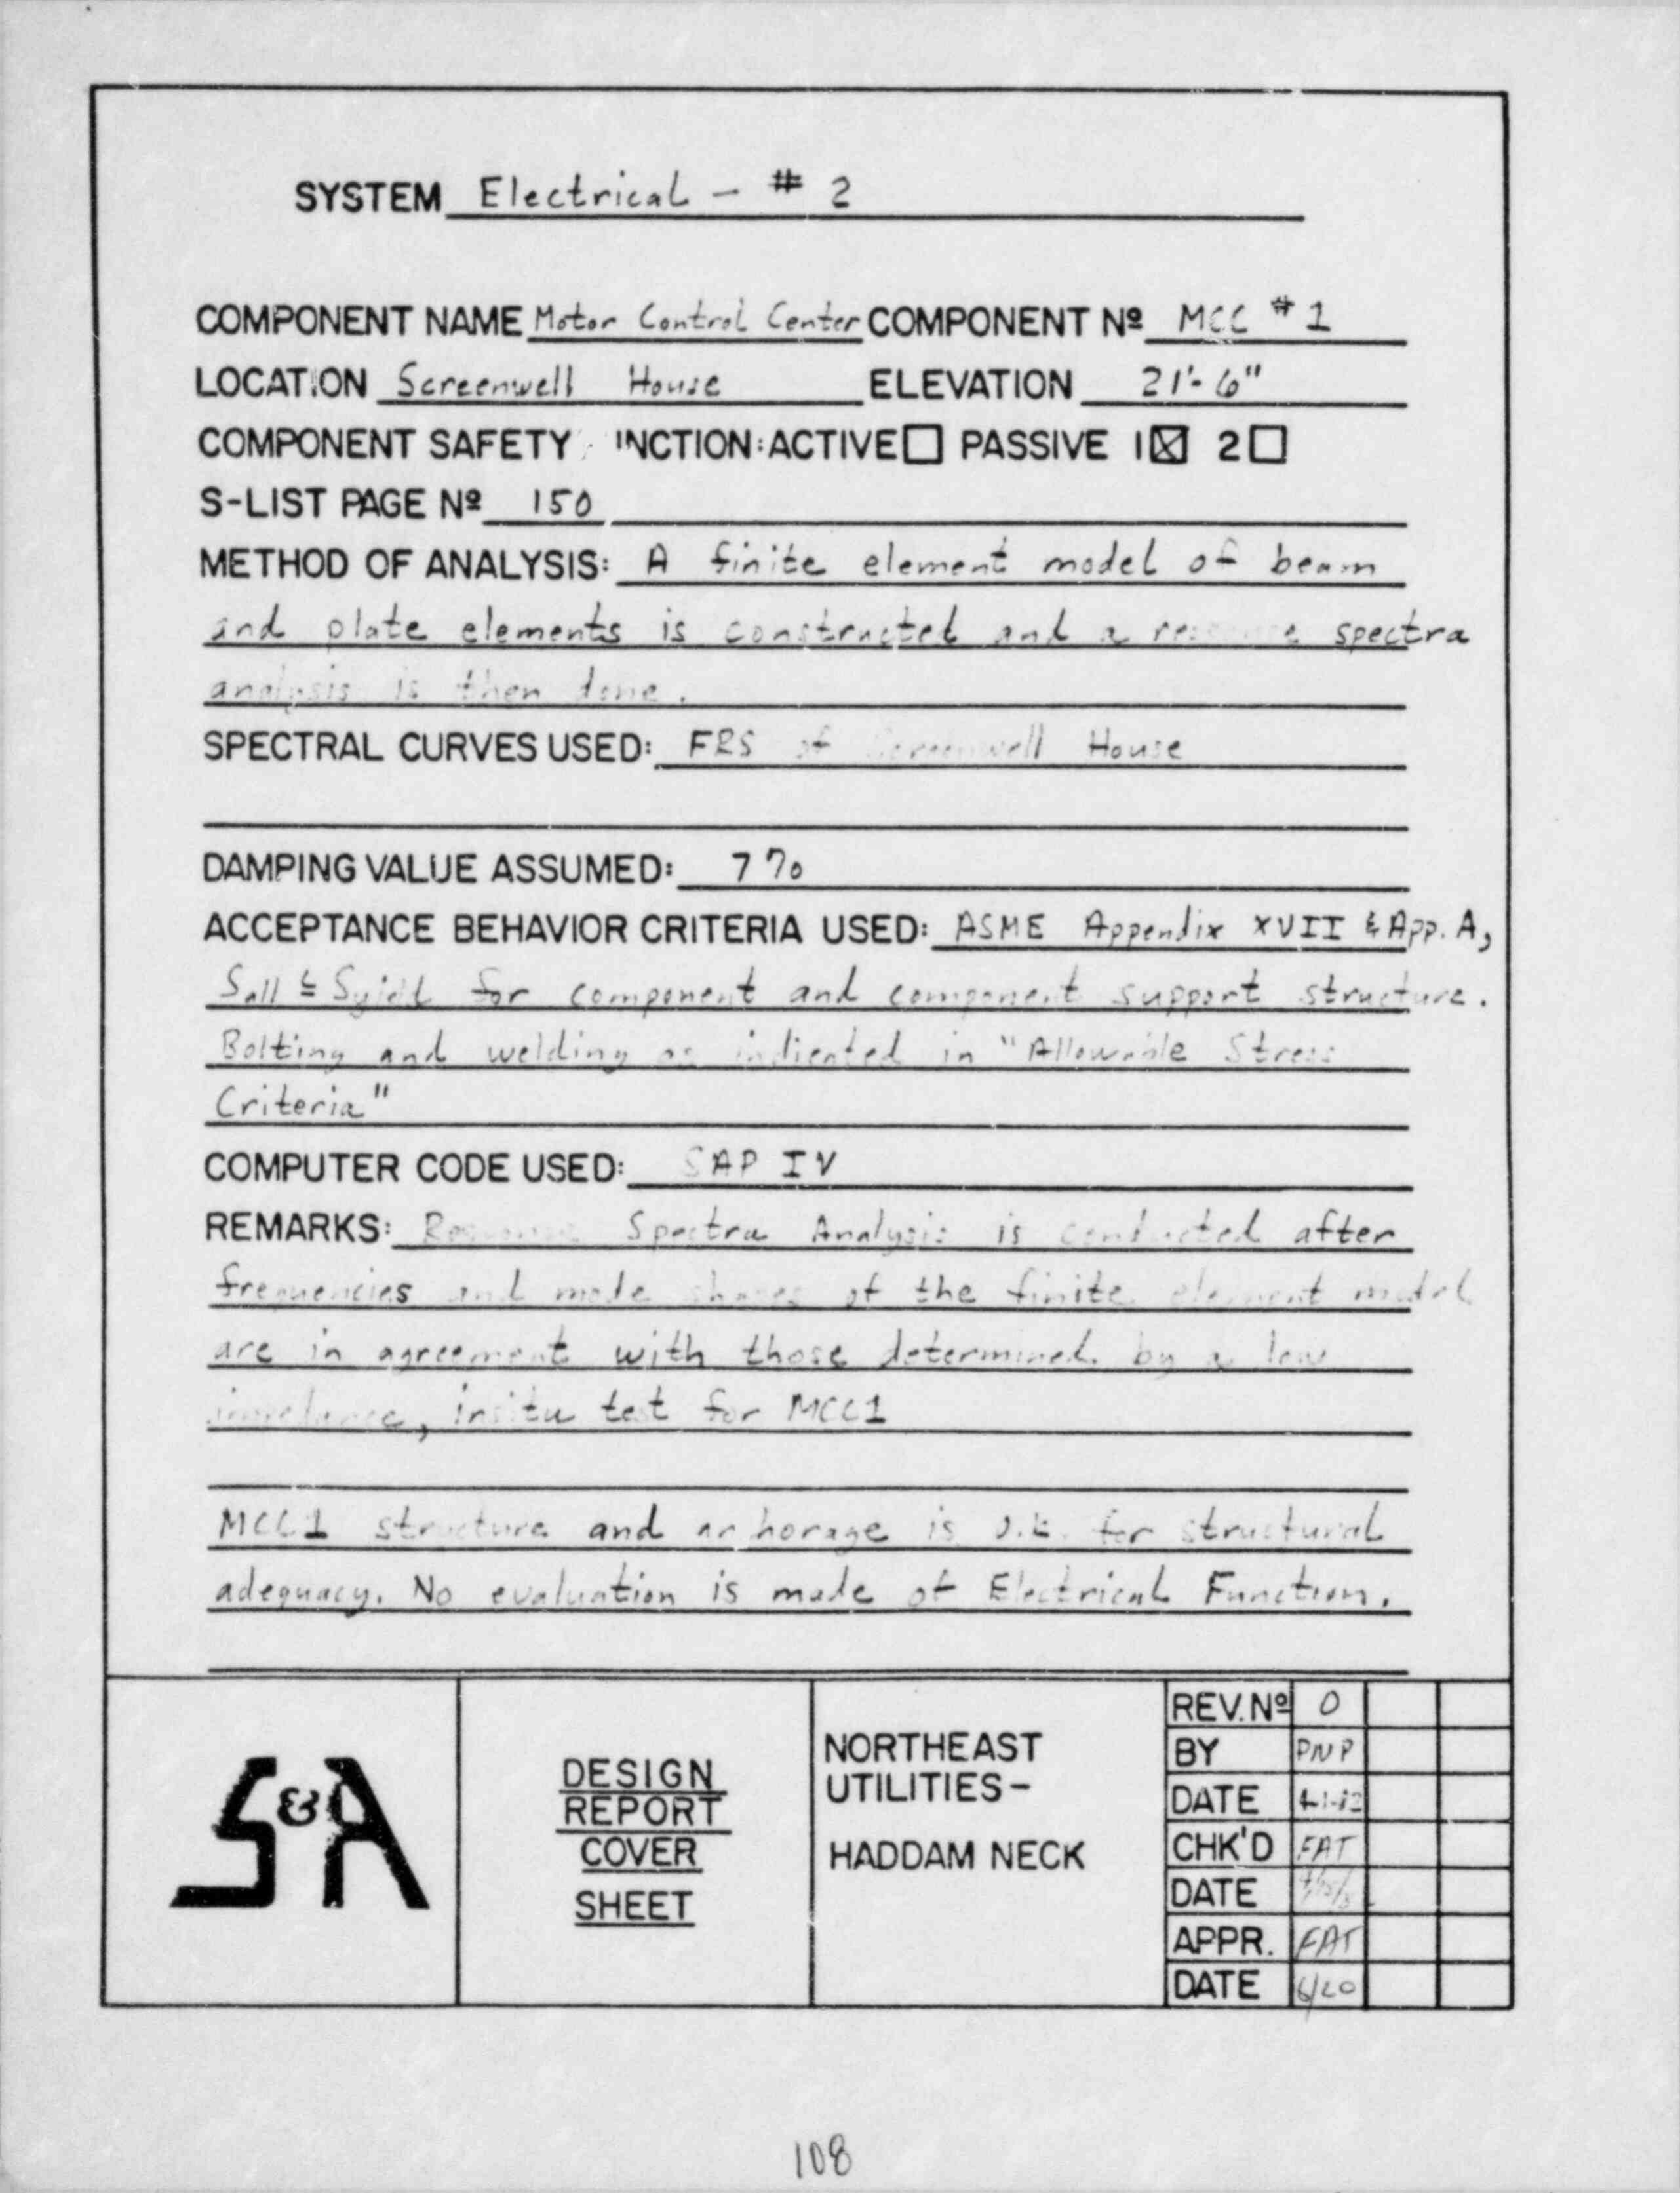 SYSTEM Electrical - # 2
COMPONENT NAME Motor Control Center COMPONENT Nº MCC #1
LOCATION Screenwell House ELEVATION 21'-6"
COMPONENT SAFETY INCTION: ACTIVE☐ PASSIVE 1☒ 2☐
S-LIST PAGE Nº 150
METHOD OF ANALYSIS: A finite element model of beam
and plate elements is constructed and a response spectra
analysis is then done.
SPECTRAL CURVES USED: FRS of Screenwell House
DAMPING VALUE ASSUMED: 7%
ACCEPTANCE BEHAVIOR CRITERIA USED: ASME Appendix XVII & App. A,
Sall ≤ Syield for component and component support structure.
Bolting and welding as indicated in "Allowable Stress
Criteria"
COMPUTER CODE USED: SAP IV
REMARKS: Response Spectra Analysis is conducted after
frequencies and mode shapes of the finite element model
are in agreement with those determined by a low
impedance, insitu test for MCC1
MCC1 structure and anchorage is O.K. for structural
adequacy. No evaluation is made of Electrical Function.
S&A
DESIGN
REPORT
COVER
SHEET
NORTHEAST
UTILITIES-
HADDAM NECK
REV. Nº 0
BY PNP
DATE 4-1-82
CHK'D FAT
DATE
APPR. FAT
DATE 6/20
108